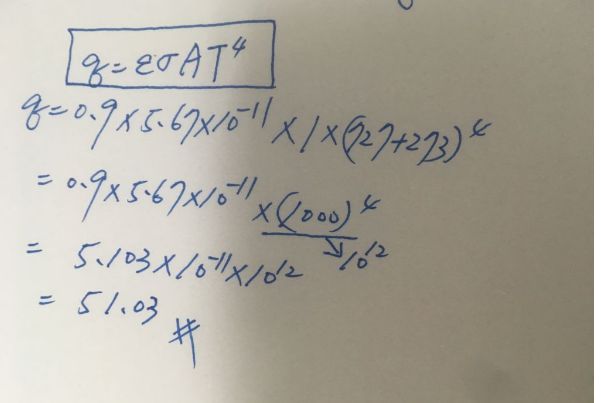 q=εσAT⁴
q=0.9×5.67×10⁻¹¹×1×(727+273)⁴
=0.9×5.67×10⁻¹¹×(1000)⁴
↘10¹²
=5.103×10⁻¹¹×10¹²
=51.03 #